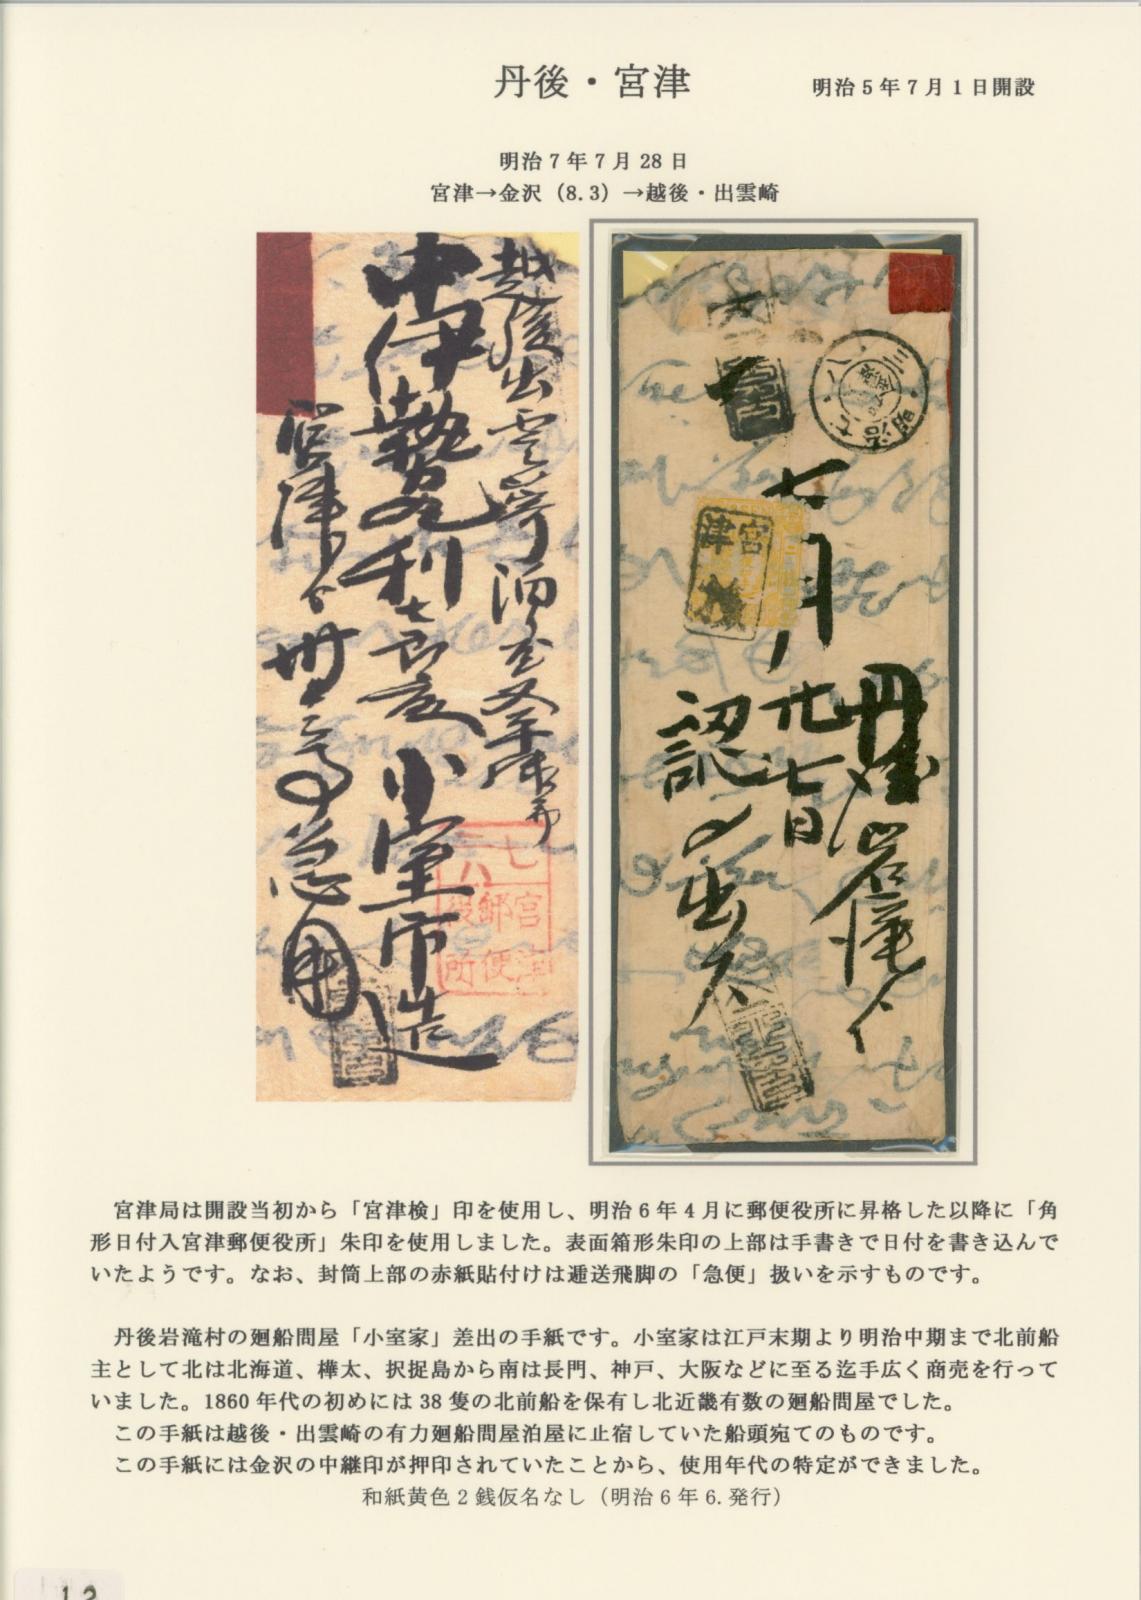 丹後・宮津
明治5年7月1日開設
明治7年7月28日
宮津→金沢（8.3）→越後・出雲崎
越後出雲崎泊屋又
中伊勢丸利七郎殿
小室市造
宮津
急用
七
八
宮津
郵便
役所
明治七
八
三
宮
津
検
七月廿七日
丹後岩滝
認メ出ス
宮津局は開設当初から「宮津検」印を使用し、明治6年4月に郵便役所に昇格した以降に「角
形日付入宮津郵便役所」朱印を使用しました。表面箱形朱印の上部は手書きで日付を書き込んで
いたようです。なお、封筒上部の赤紙貼付けは逓送飛脚の「急便」扱いを示すものです。
丹後岩滝村の廻船問屋「小室家」差出の手紙です。小室家は江戸末期より明治中期まで北前船
主として北は北海道、樺太、択捉島から南は長門、神戸、大阪などに至る迄手広く商売を行って
いました。1860年代の初めには38隻の北前船を保有し北近畿有数の廻船問屋でした。
この手紙は越後・出雲崎の有力廻船問屋泊屋に止宿していた船頭宛てのものです。
この手紙には金沢の中継印が押印されていたことから、使用年代の特定ができました。
和紙黄色2銭仮名なし（明治6年6.発行）
12